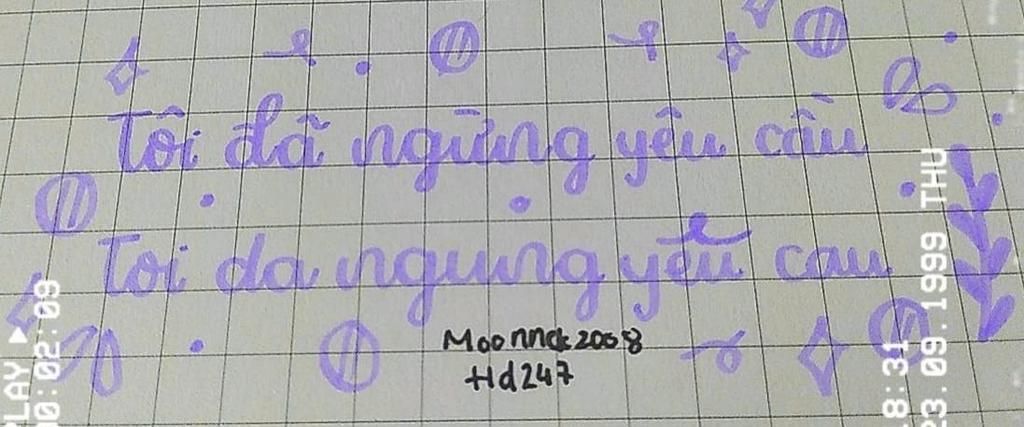 Tôi đã ngừng yêu cầu
Toi da ngung yêu cau
Moonnck2008
Hd247
PLAY ▶
00:02:09
18:31
23.09.1999 THU